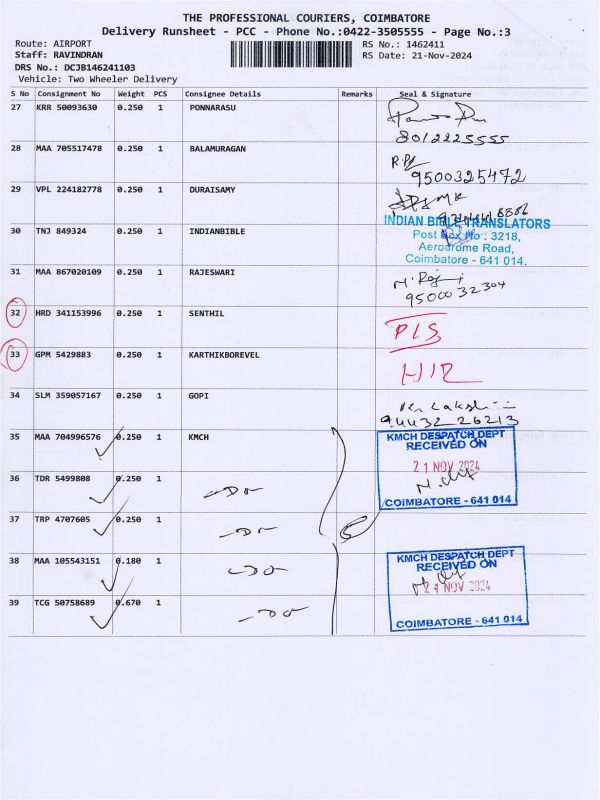 THE PROFESSIONAL COURIERS, COIMBATORE
Delivery Runsheet - PCC - Phone No.:0422-3505555 - Page No.:3
Route: AIRPORT RS No.: 1462411
Staff: RAVINDRAN RS Date: 21-Nov-2024
DRS No.: DCJB146241103
Vehicle: Two Wheeler Delivery
S No Consignment No Weight PCS Consignee Details Remarks Seal & Signature
27 KRR 50093630 0.250 1 PONNARASU
8012225555
28 MAA 705517478 0.250 1 BALAMURAGAN
9500325472
29 VPL 224182778 0.250 1 DURAISAMY
30 TNJ 849324 0.250 1 INDIANBIBLE INDIAN BIBLE TRANSLATORS
Post Box No : 3218,
Aerodrome Road,
Coimbatore - 641 014.
31 MAA 867020109 0.250 1 RAJESWARI
9500032304
32 HRD 341153996 0.250 1 SENTHIL
33 GPM 5429883 0.250 1 KARTHIKBOREVEL
34 SLM 359057167 0.250 1 GOPI
94432 26213
35 MAA 704996576 0.250 1 KMCH KMCH DESPATCH DEPT
RECEIVED ON
21 NOV 2024
36 TDR 5499808 0.250 1 -Do-
COIMBATORE - 641 014
37 TRP 4707605 0.250 1 -Do- 5
38 MAA 105543151 0.180 1 -Do- KMCH DESPATCH DEPT
RECEIVED ON
21 NOV 2024
39 TCG 50758689 0.670 1 -Do-
COIMBATORE - 641 014